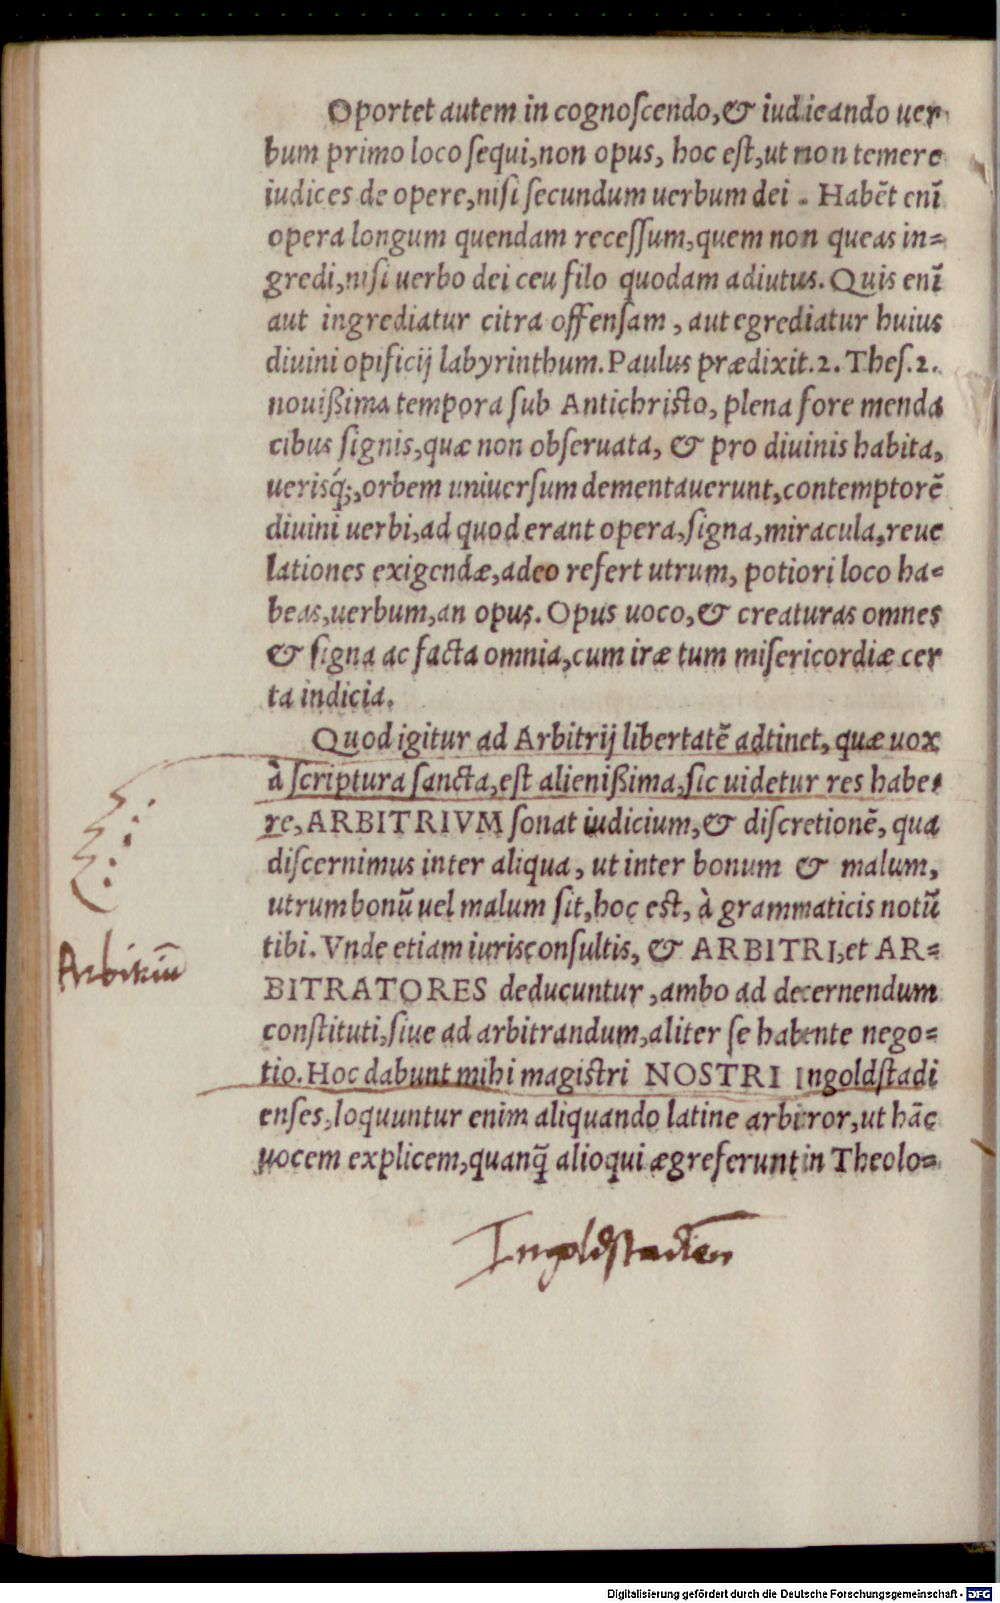 Oportet autem in cognoſcendo, & iudicando uer
bum primo loco ſequi, non opus, hoc eſt, ut non temere
iudices de opere, niſi ſecundum uerbum dei. Habēt enī
opera longum quendam receſſum, quem non queas in=
gredi, niſi uerbo dei ceu filo quodam adiutus. Quis enī
aut ingrediatur citra offenſam, aut egrediatur huius
diuini opificij labyrinthum. Paulus prædixit. 2. Theſ. 2.
nouißima tempora ſub Antichriſto, plena fore menda
cibus ſignis, quæ non obſeruata, & pro diuinis habita,
uerisq́;, orbem uniuerſum dementauerunt, contemptorē
diuini uerbi, ad quod erant opera, ſigna, miracula, reue
lationes exigendæ, adeo refert utrum, potiori loco ha=
beas, uerbum, an opus. Opus uoco, & creaturas omnes
& ſigna ac facta omnia, cum iræ tum miſericordiæ cer
ta indicia.
Quod igitur ad Arbitrij libertatē adtinet, quæ uox
à ſcriptura ſancta, eſt alienißima, ſic uidetur res habe=
re, ARBITRIVM ſonat iudicium, & diſcretionē, qua
diſcernimus inter aliqua, ut inter bonum & malum,
utrum bonū uel malum ſit, hoc est, à grammaticis notū
tibi. Vnde etiam iurisconſultis, & ARBITRI, et AR=
Arbitriū
BITRATORES deducuntur, ambo ad decernendum
conſtituti, ſiue ad arbitrandum, aliter ſe habente nego=
tio. Hoc dabunt mihi magiſtri NOSTRI Ingoldſtadi
enſes, loquuntur enim aliquando latine arbitror, ut hāc
uocem explicem, quanq̃ alioqui ægre ferunt in Theolo=